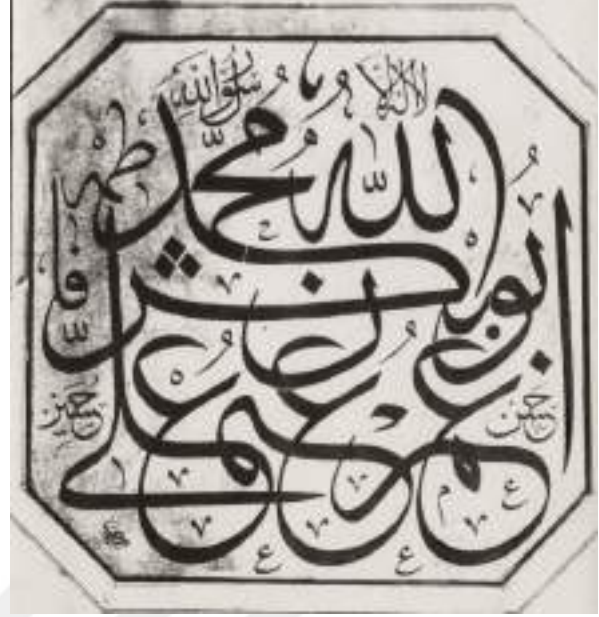 لا اله الا الله محمد رسول الله
ابوبكر
عمر عثمان علي
فاطمه
حسن حسين